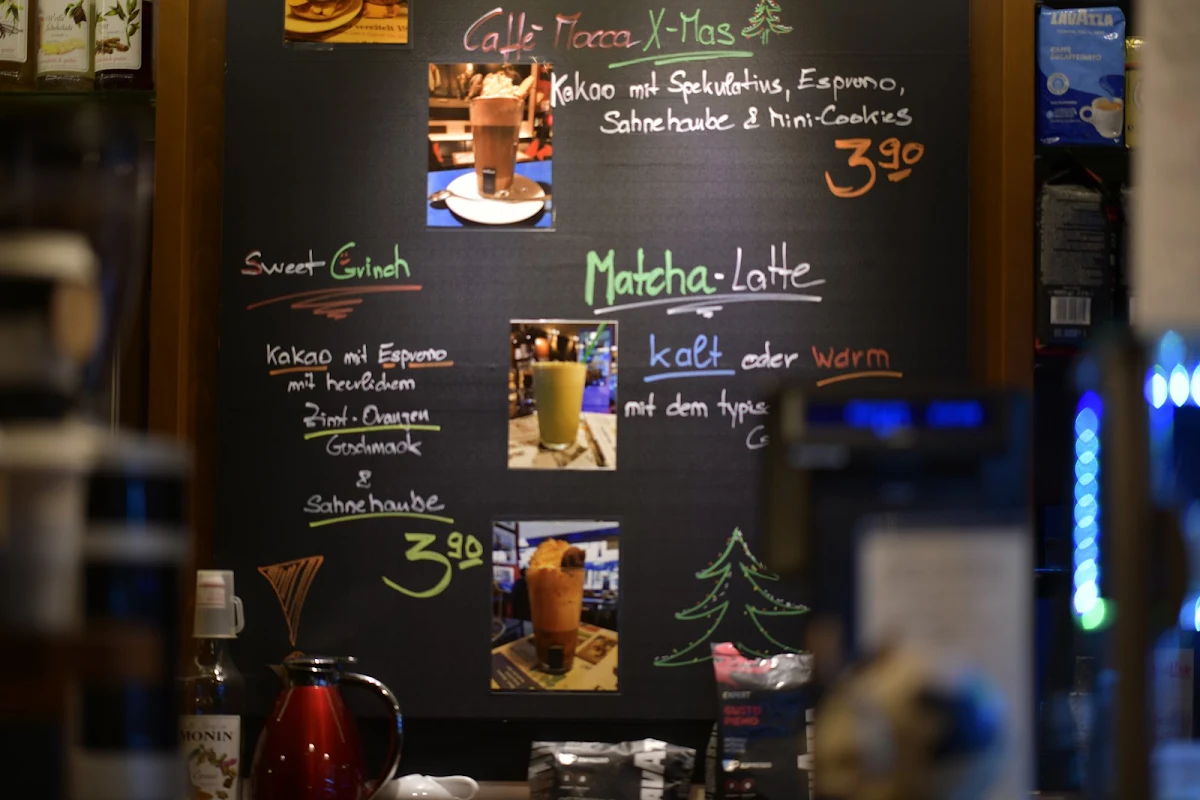 Caffè Mocca X-Mas
Kakao mit Spekulatius, Espresso,
Sahnehaube & Mini-Cookies
3,90
Sweet Grinch
Kakao mit Espresso
mit herrlichem
Zimt-Orangen
Geschmack
&
Sahnehaube
3,90
Matcha-Latte
kalt oder warm
mit dem
LAVAZZA
MONIN
EXPERT
GUSTO
PIENO